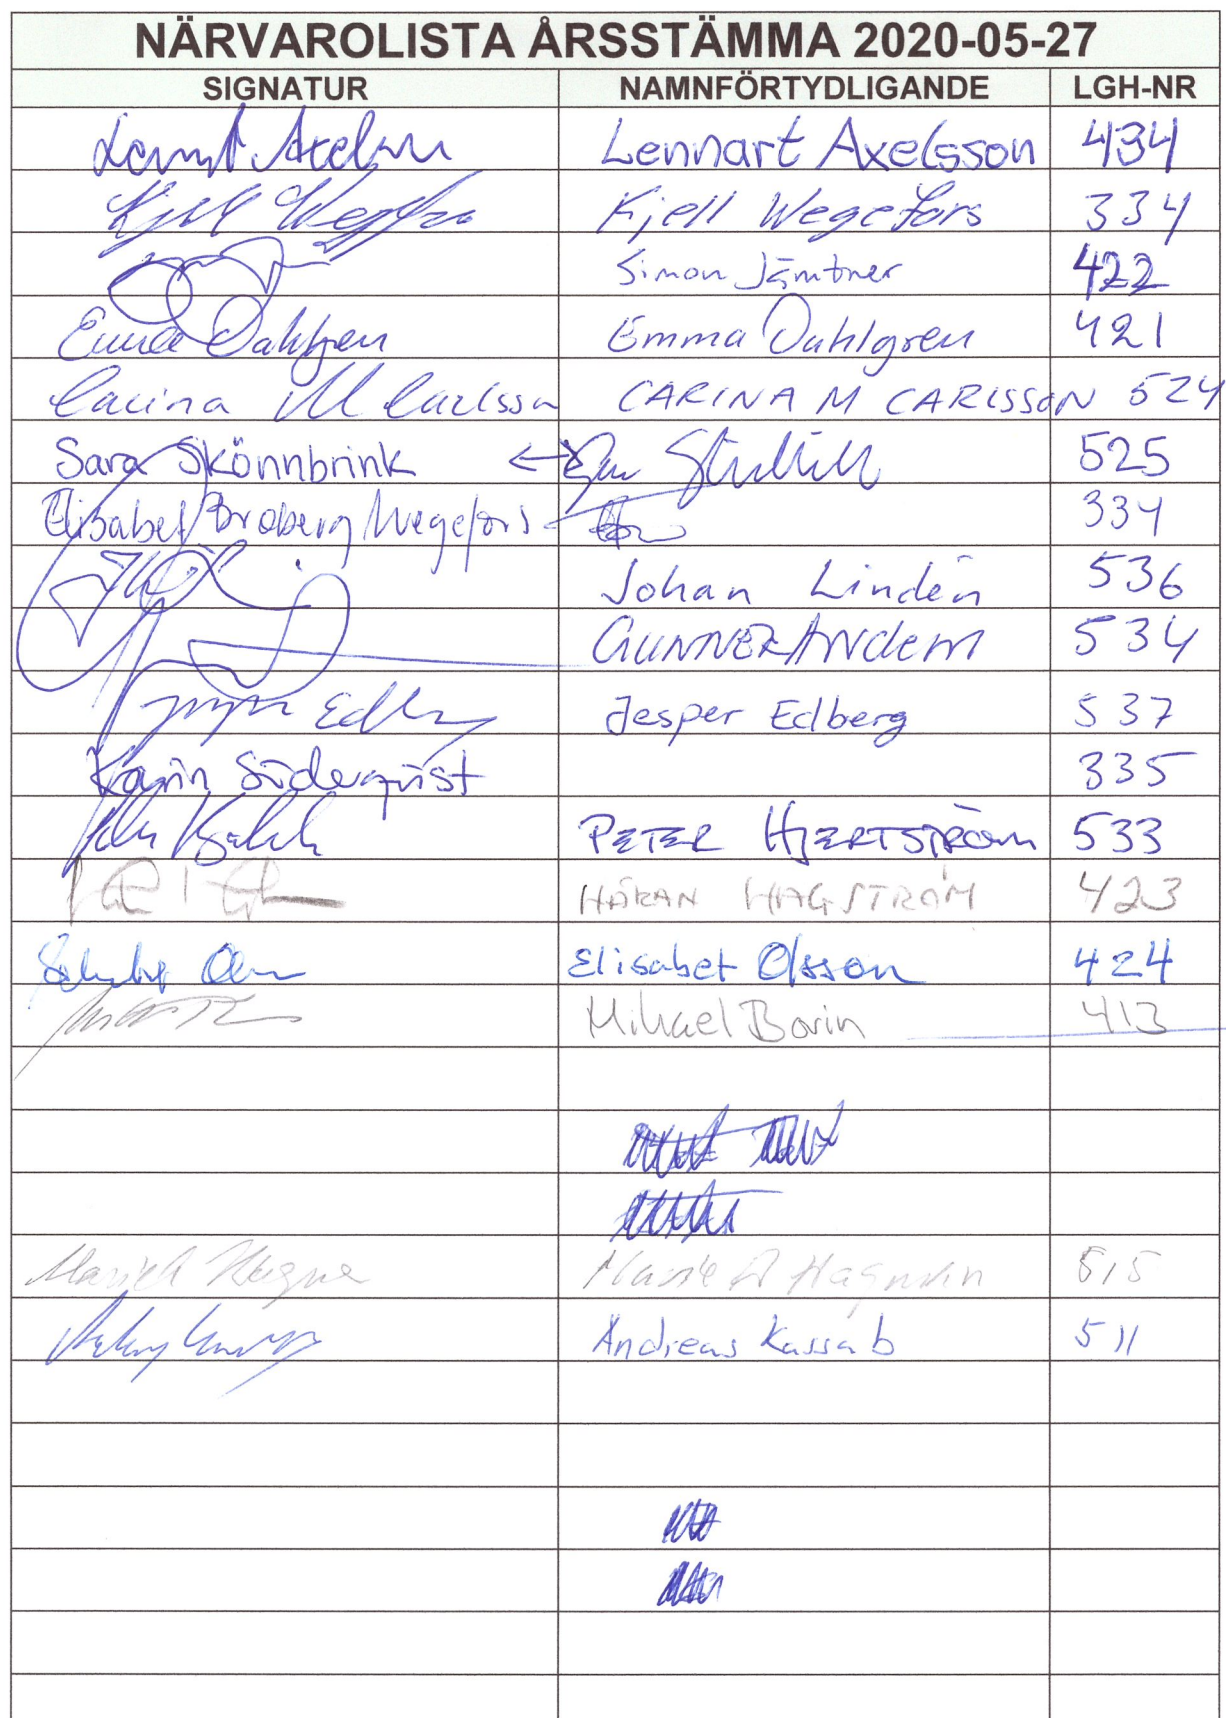 NÄRVAROLISTA ÅRSSTÄMMA 2020-05-27
SIGNATUR NAMNFÖRTYDLIGANDE LGH-NR
Lennart Axelsson 434
Kjell Wegefors 334
Simon Jämtner 422
Emma Dahlgren Emma Dahlgren 421
Carina M Carlsson CARINA M CARLSSON 524
Sara Skönnbrink 525
Elisabet Broberg Wegefors 334
Johan Lindén 536
GUNNER 534
Jesper Edberg 537
Karin Söderqvist 335
PETER HJERTSTRÖM 533
HÅKAN HAGSTRÖM 423
Elisabet Olsson 424
Mikael Borin 413
515
Andreas Kassab 511